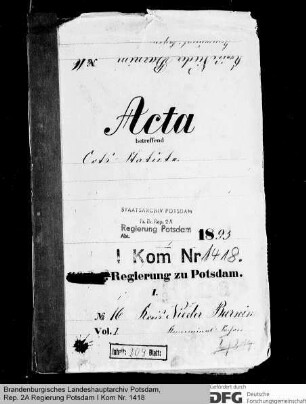 Kreis Nieder Barnim
№ 16
Acta
betreffend
Orts-Statute
STAATSARCHIV POTSDAM
Pr. Br. Rep. 2A
Regierung Potsdam
Abt.
1893
I Kom Nr 1418.
Regierung zu Potsdam.
I.
№ 16 Kreis Nieder Barnim
Vol. I
Inhalt: 209 Blatt
Brandenburgisches Landeshauptarchiv Potsdam,
Rep. 2A Regierung Potsdam I Kom Nr. 1418
Gefördert durch
DFG Deutsche
Forschungsgemeinschaft